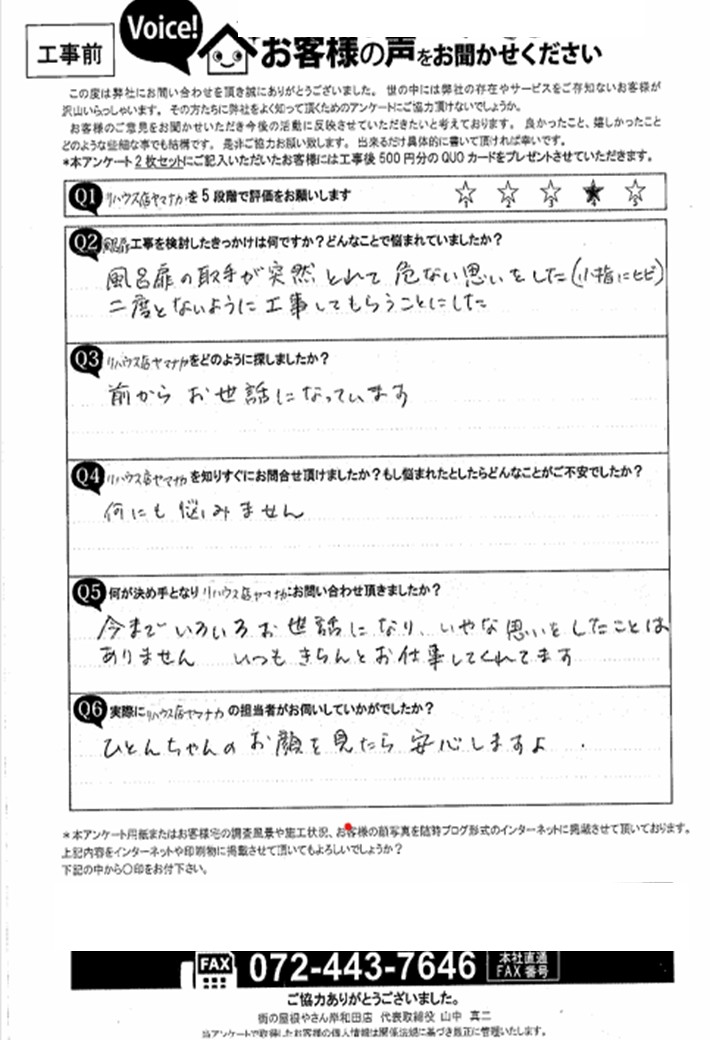 工事前
Voice!
お客様の声をお聞かせください
この度は弊社にお問い合わせを頂き誠にありがとうございました。 世の中には弊社の存在やサービスをご存知ないお客様が
沢山いらっしゃいます。 その方たちに弊社をよく知って頂くためのアンケートにご協力頂けないでしょうか。
お客様のご意見をお聞かせいただき今後の活動に反映させていただきたいと考えております。 良かったこと、嬉しかったこと
どのような些細な事でも結構です。 是非ご協力お願い致します。 出来るだけ具体的に書いて頂ければ幸いです。
*本アンケート2枚セットにご記入いただいたお客様には工事後500円分のQUOカードをプレゼントさせていただきます。
Q1 リハウス店ヤマナカを5段階で評価をお願いします
1 2 3 4 5
Q2 風呂扉工事を検討したきっかけは何ですか？どんなことで悩まれていましたか？
風呂扉の取手が突然とれて危ない思いをした(小指にヒビ)
二度とないように工事してもらうことにした
Q3 リハウス店ヤマナカをどのように探しましたか？
前からお世話になっています
Q4 リハウス店ヤマナカを知りすぐにお問合せ頂けましたか？もし悩まれたとしたらどんなことがご不安でしたか？
何にも悩みません
Q5 何が決め手となりリハウス店ヤマナカにお問い合わせ頂きましたか？
今までいろいろお世話になり、いやな思いをしたことは
ありません いつもきちんとお仕事してくれてます
Q6 実際にリハウス店ヤマナカの担当者がお伺いしていかがでしたか？
ひとんちゃんのお顔を見たら安心しますよ.
*本アンケート用紙またはお客様宅の調査風景や施工状況、お客様の顔写真を随時ブログ形式のインターネットに掲載させて頂いております。
上記内容をインターネットや印刷物に掲載させて頂いてもよろしいでしょうか？
下記の中から〇印をお付下さい。
FAX 072-443-7646 本社直通
FAX番号
ご協力ありがとうございました。
街の屋根やさん岸和田店 代表取締役 山中 真二
当アンケートで取得したお客様の個人情報は関係法紙に基づき厳正に管理いたします。